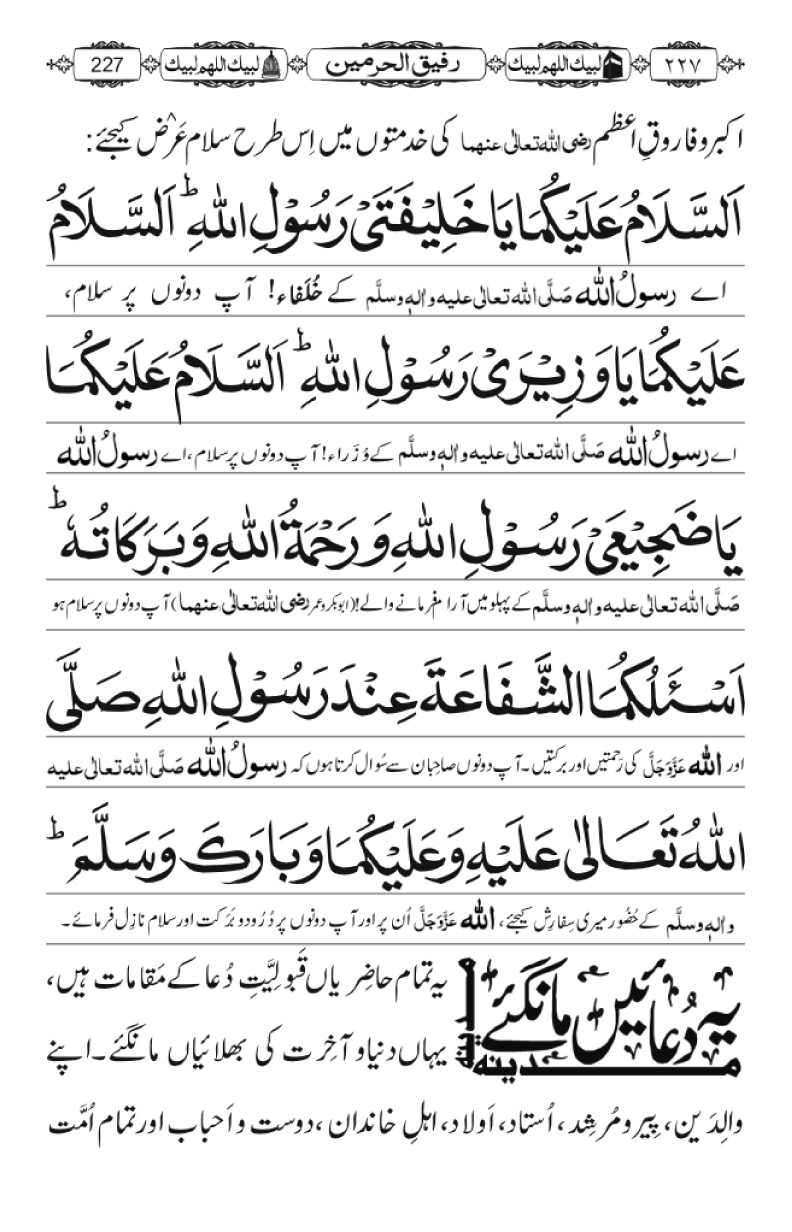 ۲۲۷ لبیك اللھم لبیك رفیق الحرمین لبیك اللھم لبیك 227
اکبر و فاروقِ اعظم رضی اللہ تعالٰی عنھما کی خدمتوں میں اِس طرح سلام عَرْض کیجئے:
اَلسَّلَامُ عَلَیْکُمَا یَا خَلِیْفَتَیْ رَسُوْلِ اللہِ ؕ اَلسَّلَامُ
اے رسولُ اللہ صَلَّی اللہ تعالٰی علیہ واٰلہٖ وسلَّم کے خُلَفاء! آپ دونوں پر سلام،
عَلَیْکُمَا یَا وَزِیْرَیْ رَسُوْلِ اللہِ ؕ اَلسَّلَامُ عَلَیْکُمَا
اے رسولُ اللہ صَلَّی اللہ تعالٰی علیہ واٰلہٖ وسلَّم کے وُزَراء! آپ دونوں پر سلام، اے رسولُ اللہ
یَا ضَجِیْعَیْ رَسُوْلِ اللہِ وَرَحْمَۃُ اللہِ وَبَرَکَاتُہٗ ؕ
صَلَّی اللہ تعالٰی علیہ واٰلہٖ وسلَّم کے پہلو میں آرام فرمانے والے! (ابوبکر و عمر رضی اللہ تعالٰی عنھما) آپ دونوں پر سلام ہو
اَسْئَلُکُمَا الشَّفَاعَۃَ عِنْدَ رَسُوْلِ اللہِ صَلَّی
اور اللہ عَزَّوَجَلَّ کی رَحمتیں اور برکتیں۔ آپ دونوں صاحبان سے سُوال کرتا ہوں کہ رسولُ اللہ صَلَّی اللہ تعالٰی علیہ
اللہُ تَعَالٰی عَلَیْہِ وَعَلَیْکُمَا وَبَارَکَ وَسَلَّمَ ؕ
واٰلہٖ وسلَّم کے حُضُور میری سِفارِش کیجئے، اللہ عَزَّوَجَلَّ اُن پر اور آپ دونوں پر دُرُود و بَرَکت اور سلام نازِل فرمائے۔
یہ دُعائیں مانگئے
مدینہ
یہ تمام حاضِریاں قَبولِیَّتِ دُعا کے مَقامات ہیں،
یہاں دنیا و آخِرت کی بھلائیاں مانگئے۔ اپنے
والِدَین، پیر و مُرشِد، اُستاد، اَولاد، اہلِ خاندان، دوست و اَحباب اور تمام اُمَّت